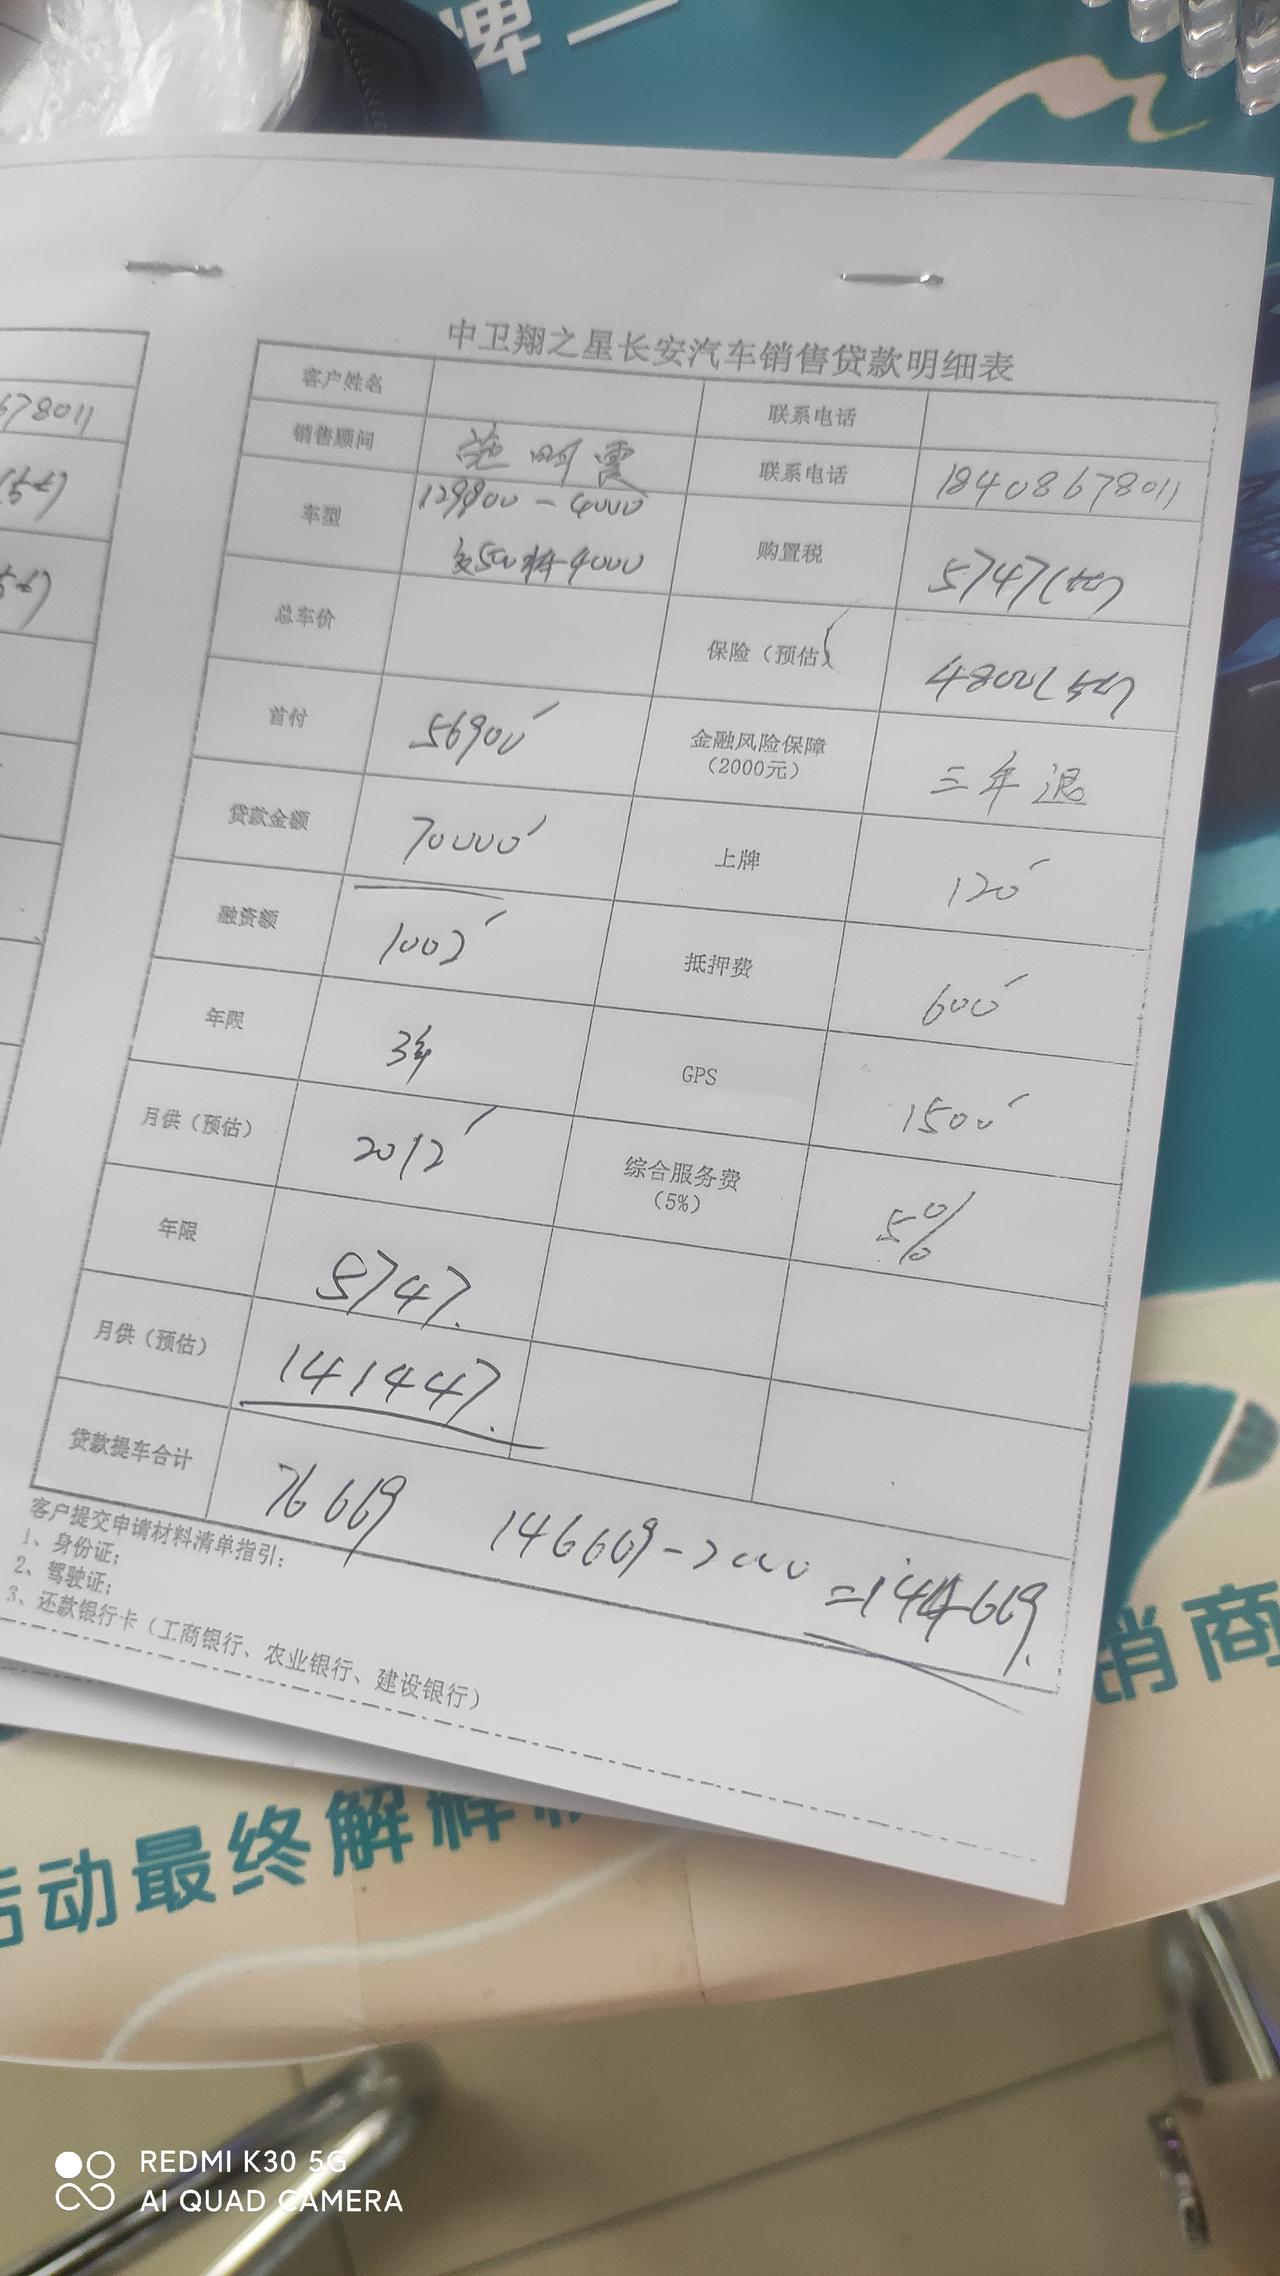 牌一
678011
中卫翔之星长安汽车销售贷款明细表
客户姓名 联系电话
销售顾问 联系电话 18408678011
车型 129900-4000
-4000
购置税 5747
总车价 保险（预估） 4800
首付 56900 金融风险保障
（2000元） 三年退
贷款金额 70000 上牌 120
融资额 1002 抵押费 600
年限 3年 GPS 1500
月供（预估） 2012 综合服务费
（5%） 5%
年限 8747.
月供（预估） 141447.
贷款提车合计 76669 146669-2000 =144669.
客户提交申请材料清单指引：
1、身份证；
2、驾驶证；
3、还款银行卡（工商银行、农业银行、建设银行）
销商
活动最终解释
REDMI K30 5G
AI QUAD CAMERA